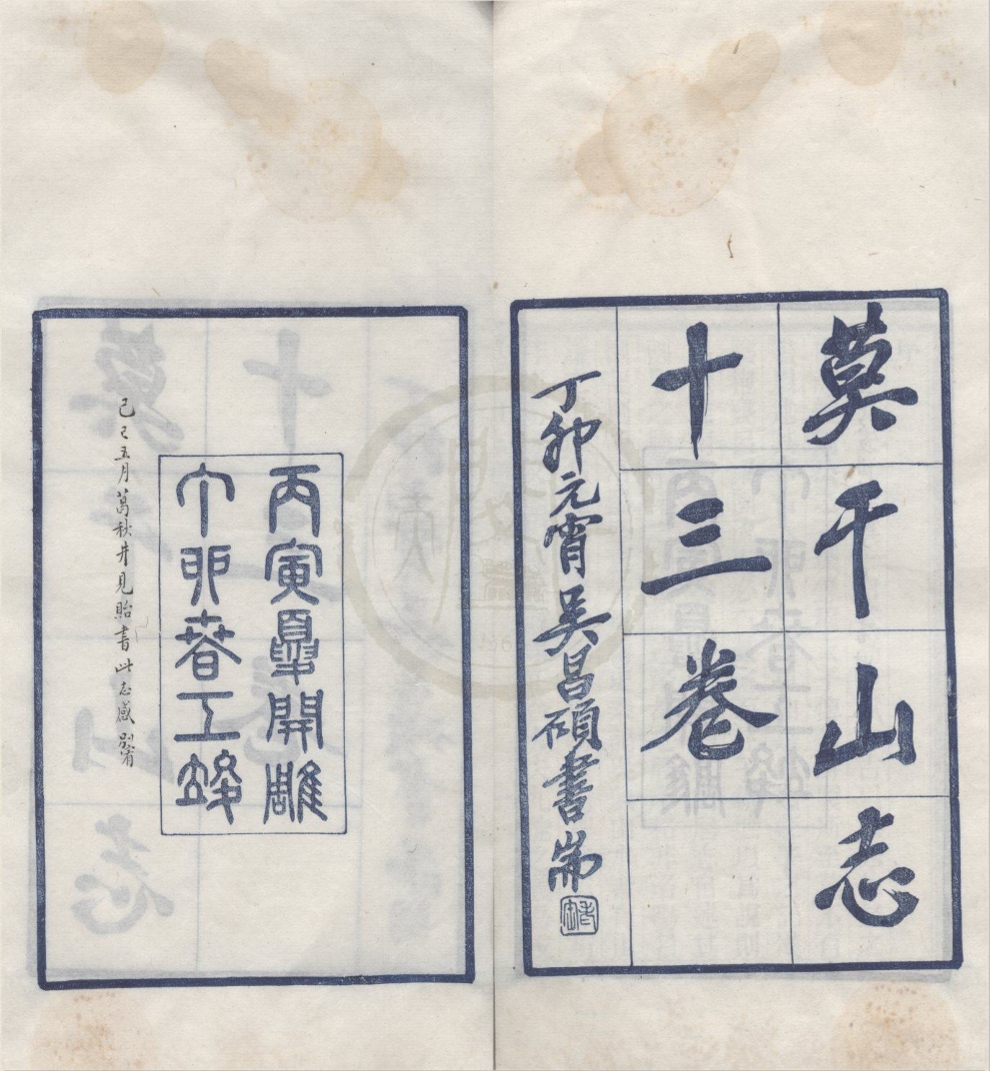 莫干山志
十三卷
丁卯元宵吳昌碩書耑
丙寅夏開雕
丁卯春工竣
己巳五月葛秋井見貽書此志感 別宥